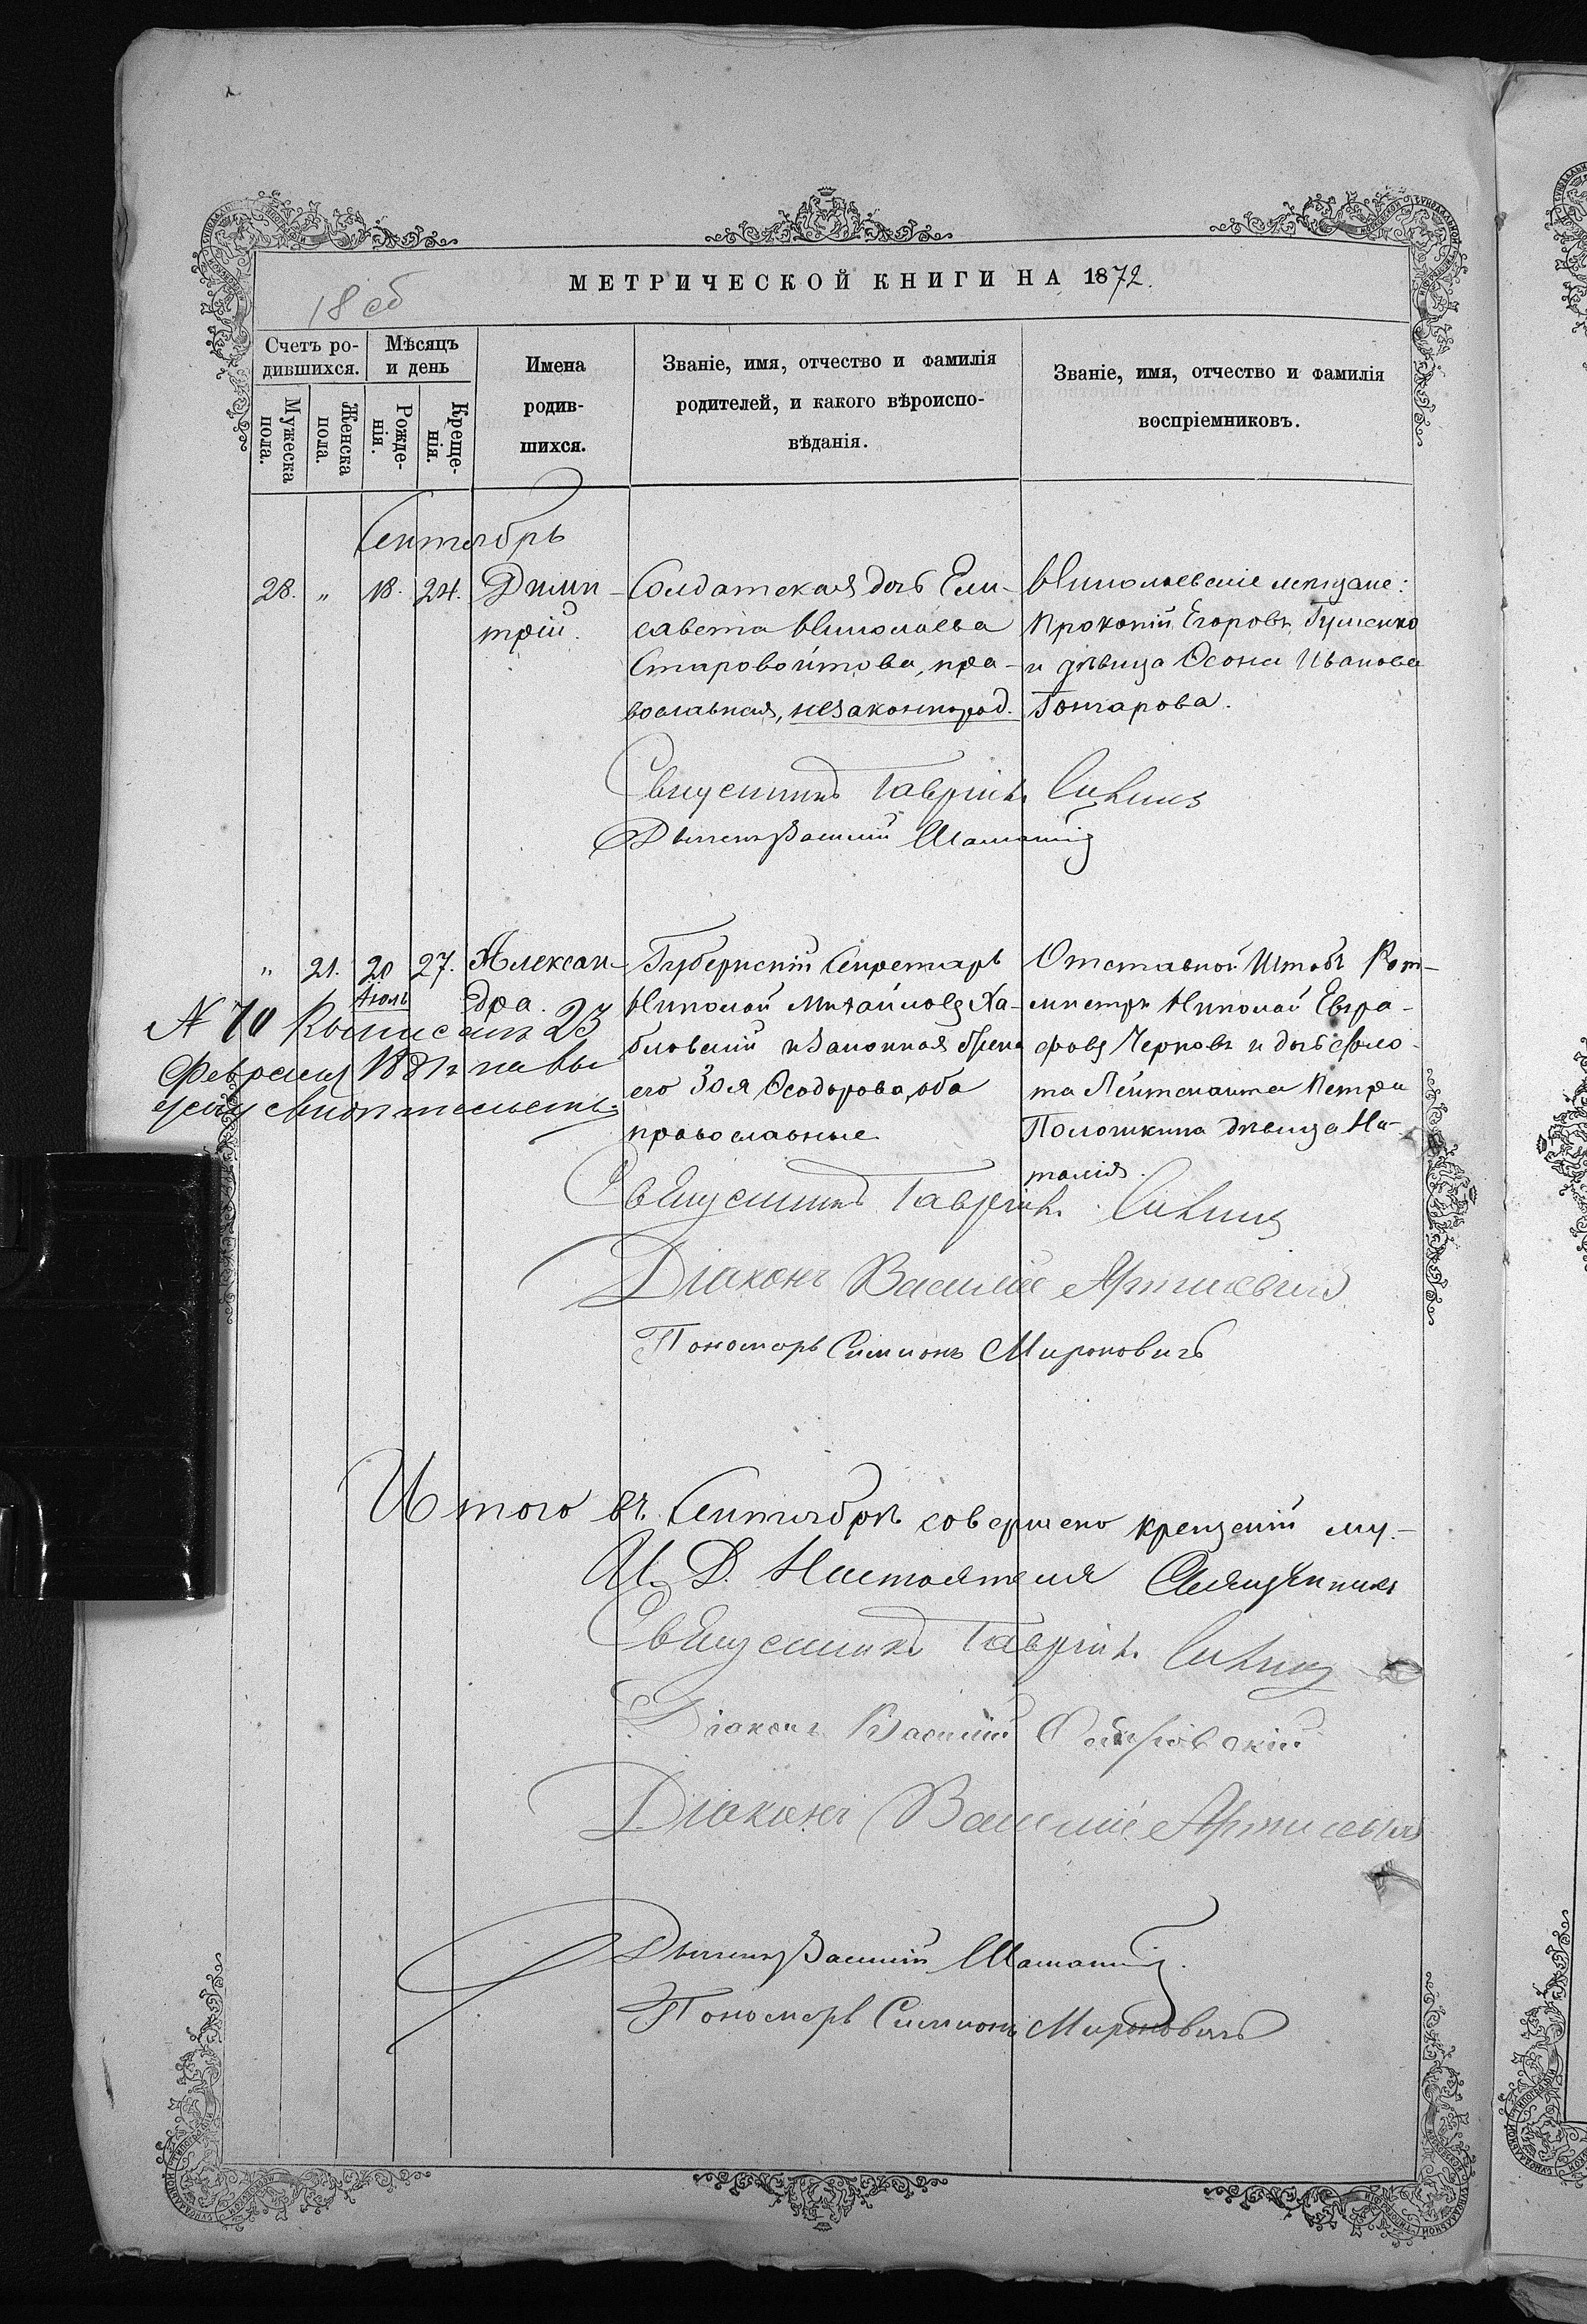 МЕТРИЧЕСКОЙ КНИГИ НА 1872.
18 об
Счетъ ро-
дившихся.
Мѣсяцъ
и день
Мужеска
пола.
Женска
пола.
Рожде-
нія.
Креще-
нія.
Имена
родив-
шихся.
Званіе, имя, отчество и фамилія
родителей, и какого вѣроиспо-
вѣданія.
Званіе, имя, отчество и фамилія
воспріемниковъ.
Сентябрь
28. „ 18. 24. Дими-
трій.
Солдатская дочь Ели-
савета Николаева
Старовойтова, пра-
вославная, незаконнород.
Николаевскіе мещане:
Прокопій Егоровъ
и дѣвица Ѳеона Иванова
Гончарова.
Священникъ Гавріилъ
Василій
„ 21. 20 27. Алексан-
Іюль
дра.
Губернскій Секретарь
Николай Михайловъ Ха-
бловскій и законная жена
его Зоя Ѳеодорова, оба
православные
Отставной Штабъ Рот-
мистръ Николай Евгра-
фовъ Черновъ и дочь фло-
та Лейтенанта Петра
Полошкина дѣвица На-
талія.
№ 70 Выписанъ 23
Февраля 1881 г на вы
свидѣтельство
Священникъ Гавріилъ
Діаконъ Василій
Пономарь Симионъ Мироновичъ
Итого въ Сентябрѣ совершено крещеній му-
И. Д. Настоятеля Священникъ
Священникъ Гавріилъ
Діаконъ Василій
Діаконъ Василій
Василій
Пономарь Симионъ Мироновичъ